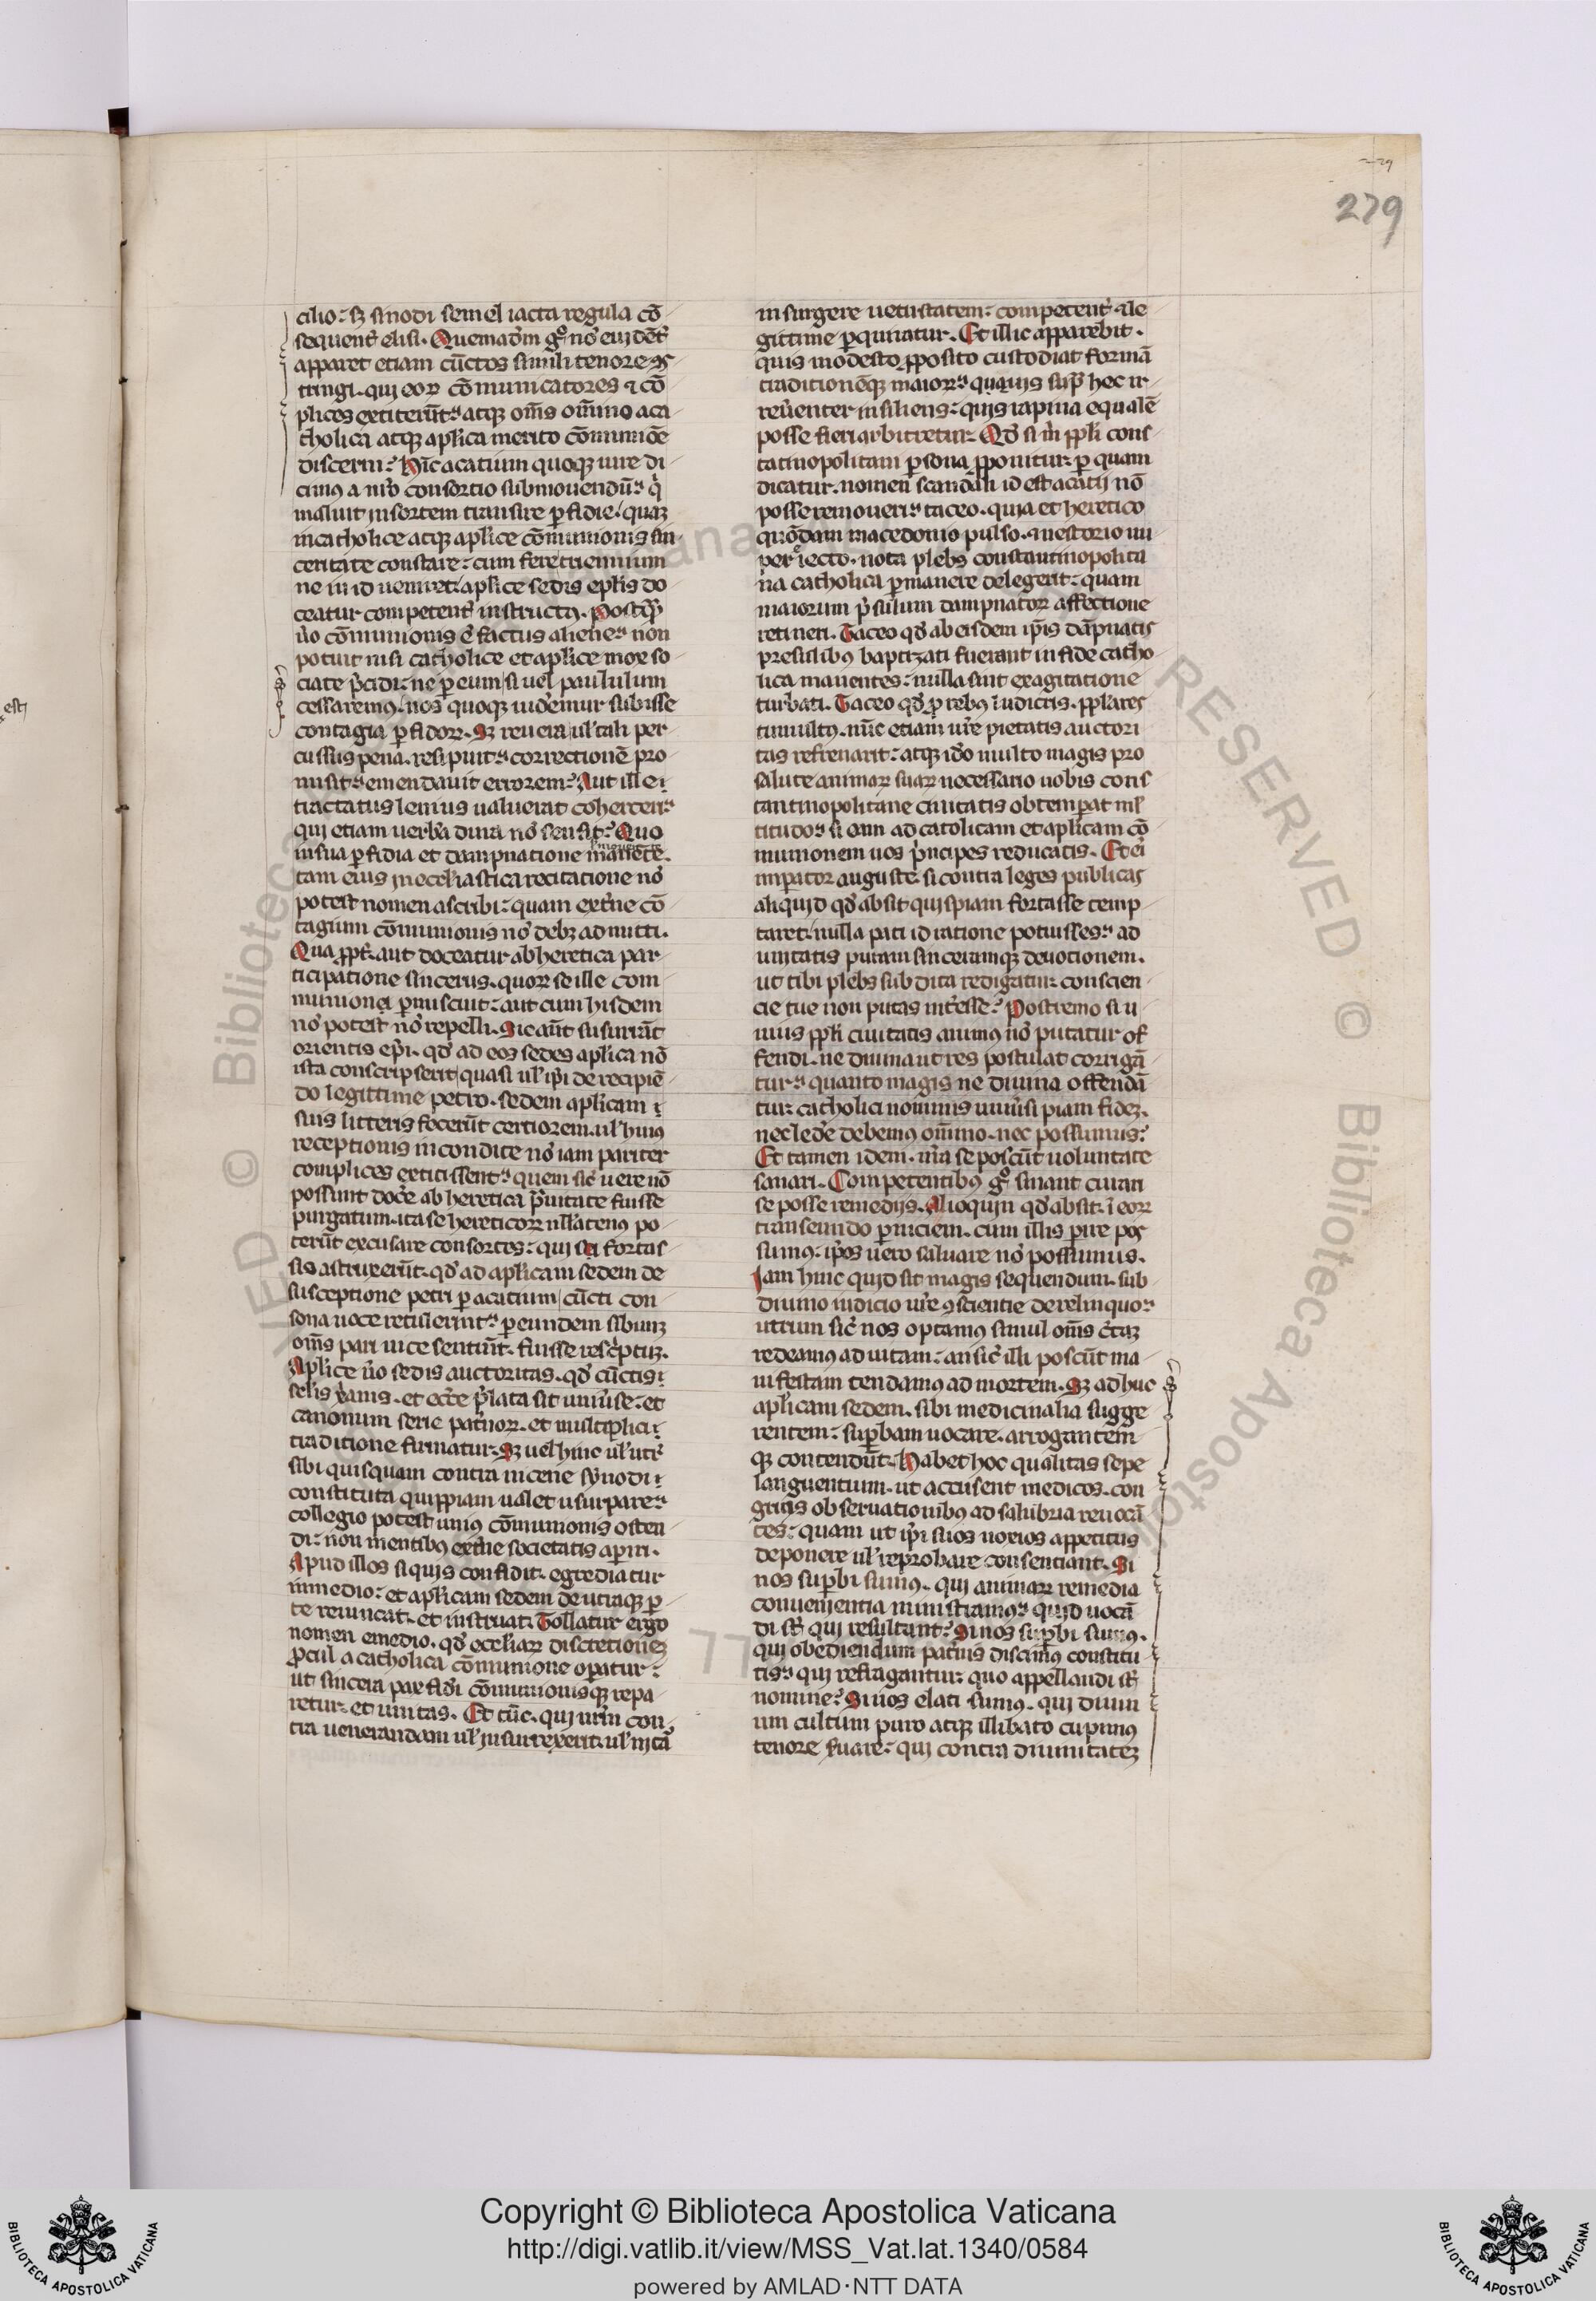 279
cilio: sꝫ sinodi semel iacta regula cō
sequent᷑ elisi. Quemadm̄ gͦ nō eujdēt᷑
apparet etiam cūctos simili tenore ꝯs
tringi. quj eoꝝ cōmunicatores ⁊ cō
plices extiterūt: atqꝫ om̄s om̄ino aca
tholica atqꝫ aplica merito cōmunioē
discerni: Hīc acatium quoqꝫ iure di
cimus a nr̄o consortio submouendū: q̇
maluit in sortem transire ꝑfidie: quaꝫ
in catholice atqꝫ aplice cōmunionis sin
ceritate constare: cum fere triennium
ne in id ueniret: aplice sedis eplis do
ceatur competent᷑ instructꝰ. Postqꝫ
ūo cōmunionis ē factus aliene: non
potuit nisi catholice et aplice mox so
ciate p̄cidi: ne ꝑ eum si uel paululum
cessaremꝰ. nos quoqꝫ uideremur subisse
contagia ꝑfidoꝝ. Sꝫ reuera ul̓ tali per
cussus pena. resipuit: correctionē pro
misit: emendauit errorem: Aut ille
tractatus lenius ualuerat coherceri:
quj etiam uerbera diuina nō sensit: Quo
in sua ꝑfidia et dampnatione manete.
tam eius in ecclesiastica recitatione nō
potest nomen ascribi: quam ext᷑ne cō
tagium cōmunionis nō debꝫ admitti.
Qua ꝓpt᷑. aut doceatur ab heretica par
ticipatione sincerus. quoꝝ se ille com
munionei ꝑmiscuit: aut cum hisdem
nō potest nō repelli. Sic aūt susurrāt
orientis ep̄i. qd̓ ad eos sedes aplica nō
ista conscripserit quasi ul̓ ip̄i de recipiē
do legittime petro. sedem aplicam
suis litteris fecerūt certiorem. ul̓ huiꝰ
receptionis incondite nō iam pariter
complices extitissent: quem sic uere nō
possunt docēr ab heretica p̄uitate fuisse
purgatum. ita se hereticoꝝ nllatenꝰ po
terūt excusare consortes: qui si fortas
sis astruxerūt. qd̓ ad aplicam sedem de
susceptione petri ꝑ acatium cūcti con
sona uoce retulerint: ꝑ eundem sibimꝫ
om̄s pari uice sentiūt. fuisse rescptuꝫ.
Aplice ūo sedis auctoritas. qd̓ cūctis
sclis xianis. et eccl̓e p̄lata sit uniūse: et
canonum serie patnoꝝ. et multiplici
traditione firmatur. Sꝫ uel hinc ul̓ utr᷑
sibi quisquam contra nicene synodi
constituta quippiam ualet usurpare:
collegio potest uniꝰ cōmunionis osten
di: non mentibꝰ ext᷑ne societatis aꝑiri.
Apud illos si quis confidit. egrediatur
in medio: et aplicam sedem de utraqꝫ ꝑ
te reuincat. et instruat. Tollatur ergo
nomen e medio. qd̓ eccl̓iaꝝ discretioneꝫ
ꝓcul a catholica cōmunione oꝑatur:
ut sincera pax fidei cōmunionisqꝫ repa
retur. et unitas. Et tūc. qui nr̄m con
tra uenerandam ul̓ insurrexerit. ul̓ nitā
insurgere uetustatem: competent᷑ ⁊ le
gittime ꝑquiratur. Et illic apparebit.
quis modesto ꝓposito custodiat formā
traditionēqꝫ maioꝝ: quāuis suꝑ hec ir
reuerenter insiliens: quis rapina equalē
posse fieri arbitretur. Qd̓ si m̄ ppl̓i cons
tatinopolitani ꝑsona ꝓponitur. ꝑ quam
dicatur. nomen scandali id est acatij nō
posse remoueri: taceo. quia et heretico
quōdam macedonio pulso. ⁊ nestorio nu
per iecto. nota plebs constantinopolita
na catholica ꝑmanere delegerit: quam
maiorum p̄sulum dampnatoꝝ affectione
retineri. Taceo qd̓ ab eisdem ip̄is dāpnatis
presulibꝰ baptizati fuerant in fide catho
lica manentes: nulla sint exagitatione
turbati. Taceo qd̓ ꝓ rebꝰ ludicris. ppl̓ares
tumultꝰ. nūc etiam ur̄e pietatis auctori
tas refrenarit: atqꝫ ideo multo magis pro
salute animaꝝ suaꝝ necessario uobis cons
tantinopolitane ciuitatis obtemperat ml̓
titudo: si eam ad catolicam et aplicam cō
munionem uos p̄ncipes reducatis. Etei
imperator auguste. si contra leges publicas
aliquid qd̓ absit quispiam fortasse temp
taret: nulla pati id ratione potuisses: ad
unitatis puram sinceramqꝫ deuotionem.
ut tibi plebs subdita redigatur. conscien
cie tue non putas int᷑esse: Postremo si u
nius ppl̓i ciuitatis animꝰ nō putatur of
fendi. ne diuina ut res postulat corrigā
tur: quanto magis ne diuina offendā
tur. catholici nominis uniūsi piam fidꝫ.
nec ledēr debemꝰ om̄ino. nec possumus:
Et tamen idem. nr̄a se poscūt uoluntate
sanari. Competentibꝰ gͦ. sinant curari
se posse remedijs. Alioquin qd̓ absit. ī eoꝝ
transeundo ꝑniciem. cum illis ꝑire pos
sumꝰ: ip̄os uero saluare nō possumus.
Iam hinc quid sit magis sequendum. sub
diuino iudicio ur̄e ꝯscientie derelinquo:
utrum sic nos optamꝰ simul om̄s c̄taꝫ
redeamꝰ ad uitam: an sic illi poscūt ma
nifestam tendamꝰ ad mortem. Sꝫ adhuc
aplicam sedem. sibi medicinalia sugge
rentem: suꝑbam uocare. arrogantem
qꝫ contendūt. Habet hoc qualitas sepe
languentium. ut accusent medicos. con
gruis obseruationibꝰ ad salubria reuocā
tes: quam ut ip̄i suos noxios appetitus
deponere ul̓ reprobare consentiant. Si
nos suꝑbi sumꝰ. qui animaꝝ remedia
conuenientia ministramꝰ: quid uocā
di st̄ qui resultant: Si nos suꝑbi sumꝰ.
qui obediendum pat᷑nis discimꝰ constitu
tis: qui refragantur. quo appellandi st̄
nomine: Si nos elati sumꝰ. qui diuin
um cultum puro atqꝫ illibato cupimꝰ
tenore suare: qui contra diuinitateꝫ
Copyright © Biblioteca Apostolica Vaticana
http://digi.vatlib.it/view/MSS_Vat.lat.1340/0584
powered by AMLAD·NTT DATA